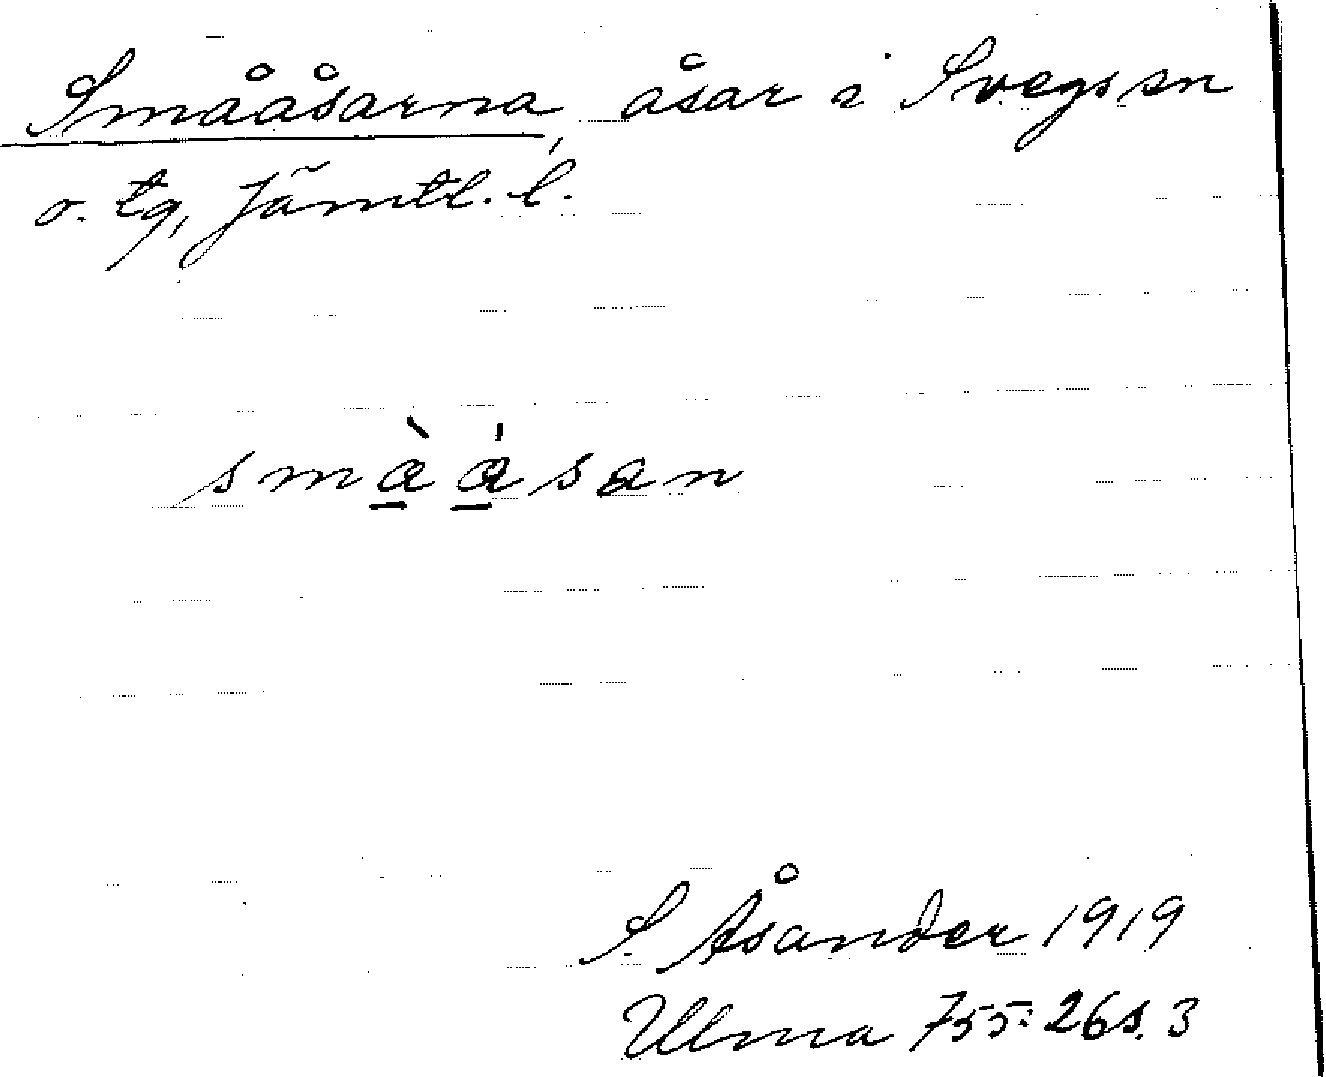 Smååsarna, åsar i Svegs sn
o. tg, Jämtl. l.
smà̲á̲san
S. Åsander 1919
Ulma 755:26 s. 3